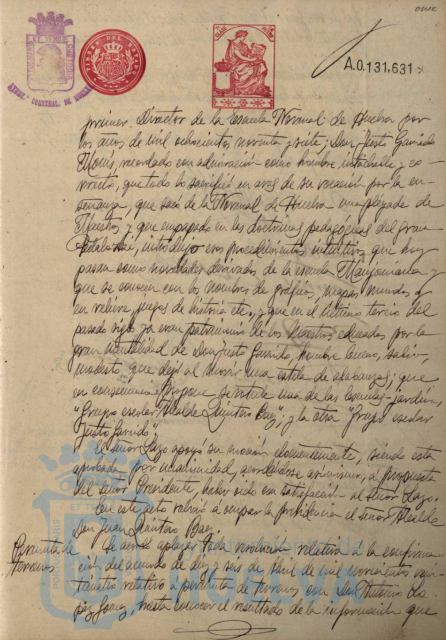 once
A.0.131.631
primer Director de la Escuela Normal de Huelva por
los años de mil ochocientos noventa y siete; Don Justo Garrido
Mora, recordado con admiración como hombre intachable y
que todo lo sacrificó en aras de su vocación por la en-
señanza, que sacó de la Normal de Huelva una pléyade de
Maestros y que empapado en las doctrinas pedagógicas del gran
Pestalozzi, introdujo esos procedimientos intuitivos que hoy
pasan como novedades derivadas de la escuela
que se conocen con los nombres de gráficos, mapas mundos
en relieve, juegos de historia etc., y que en el último tercio del
pasado siglo ya eran patrimonio de los Maestros educados por la
gran mentalidad de Don Justo Garrido, hombre bueno, sabio,
modesto, que dejó al morir una estela de alabanzas; que
en consecuencia propone se titule una de las Escuelas-jardín,
"Grupo escolar Alcalde Quintero Báez"; y la otra "Grupo escolar
Justo Garrido".
El señor Lazo apoyó su moción elocuentemente, siendo esta
aprobada por unanimidad, acordándose asimismo, a propuesta
del señor Presidente, haber oído con satisfacción al señor Lazo.
En este acto volvió a ocupar la presidencia el señor Alcalde
Don Juan Quintero Báez.
Permuta de
terrenos
Se acordó aplazar toda resolución relativa á la confirma-
ción del acuerdo de diez y seis de Abril de mil novecientos
relativo á permuta de terrenos con Don Antonio
hasta conocer el resultado de la información que